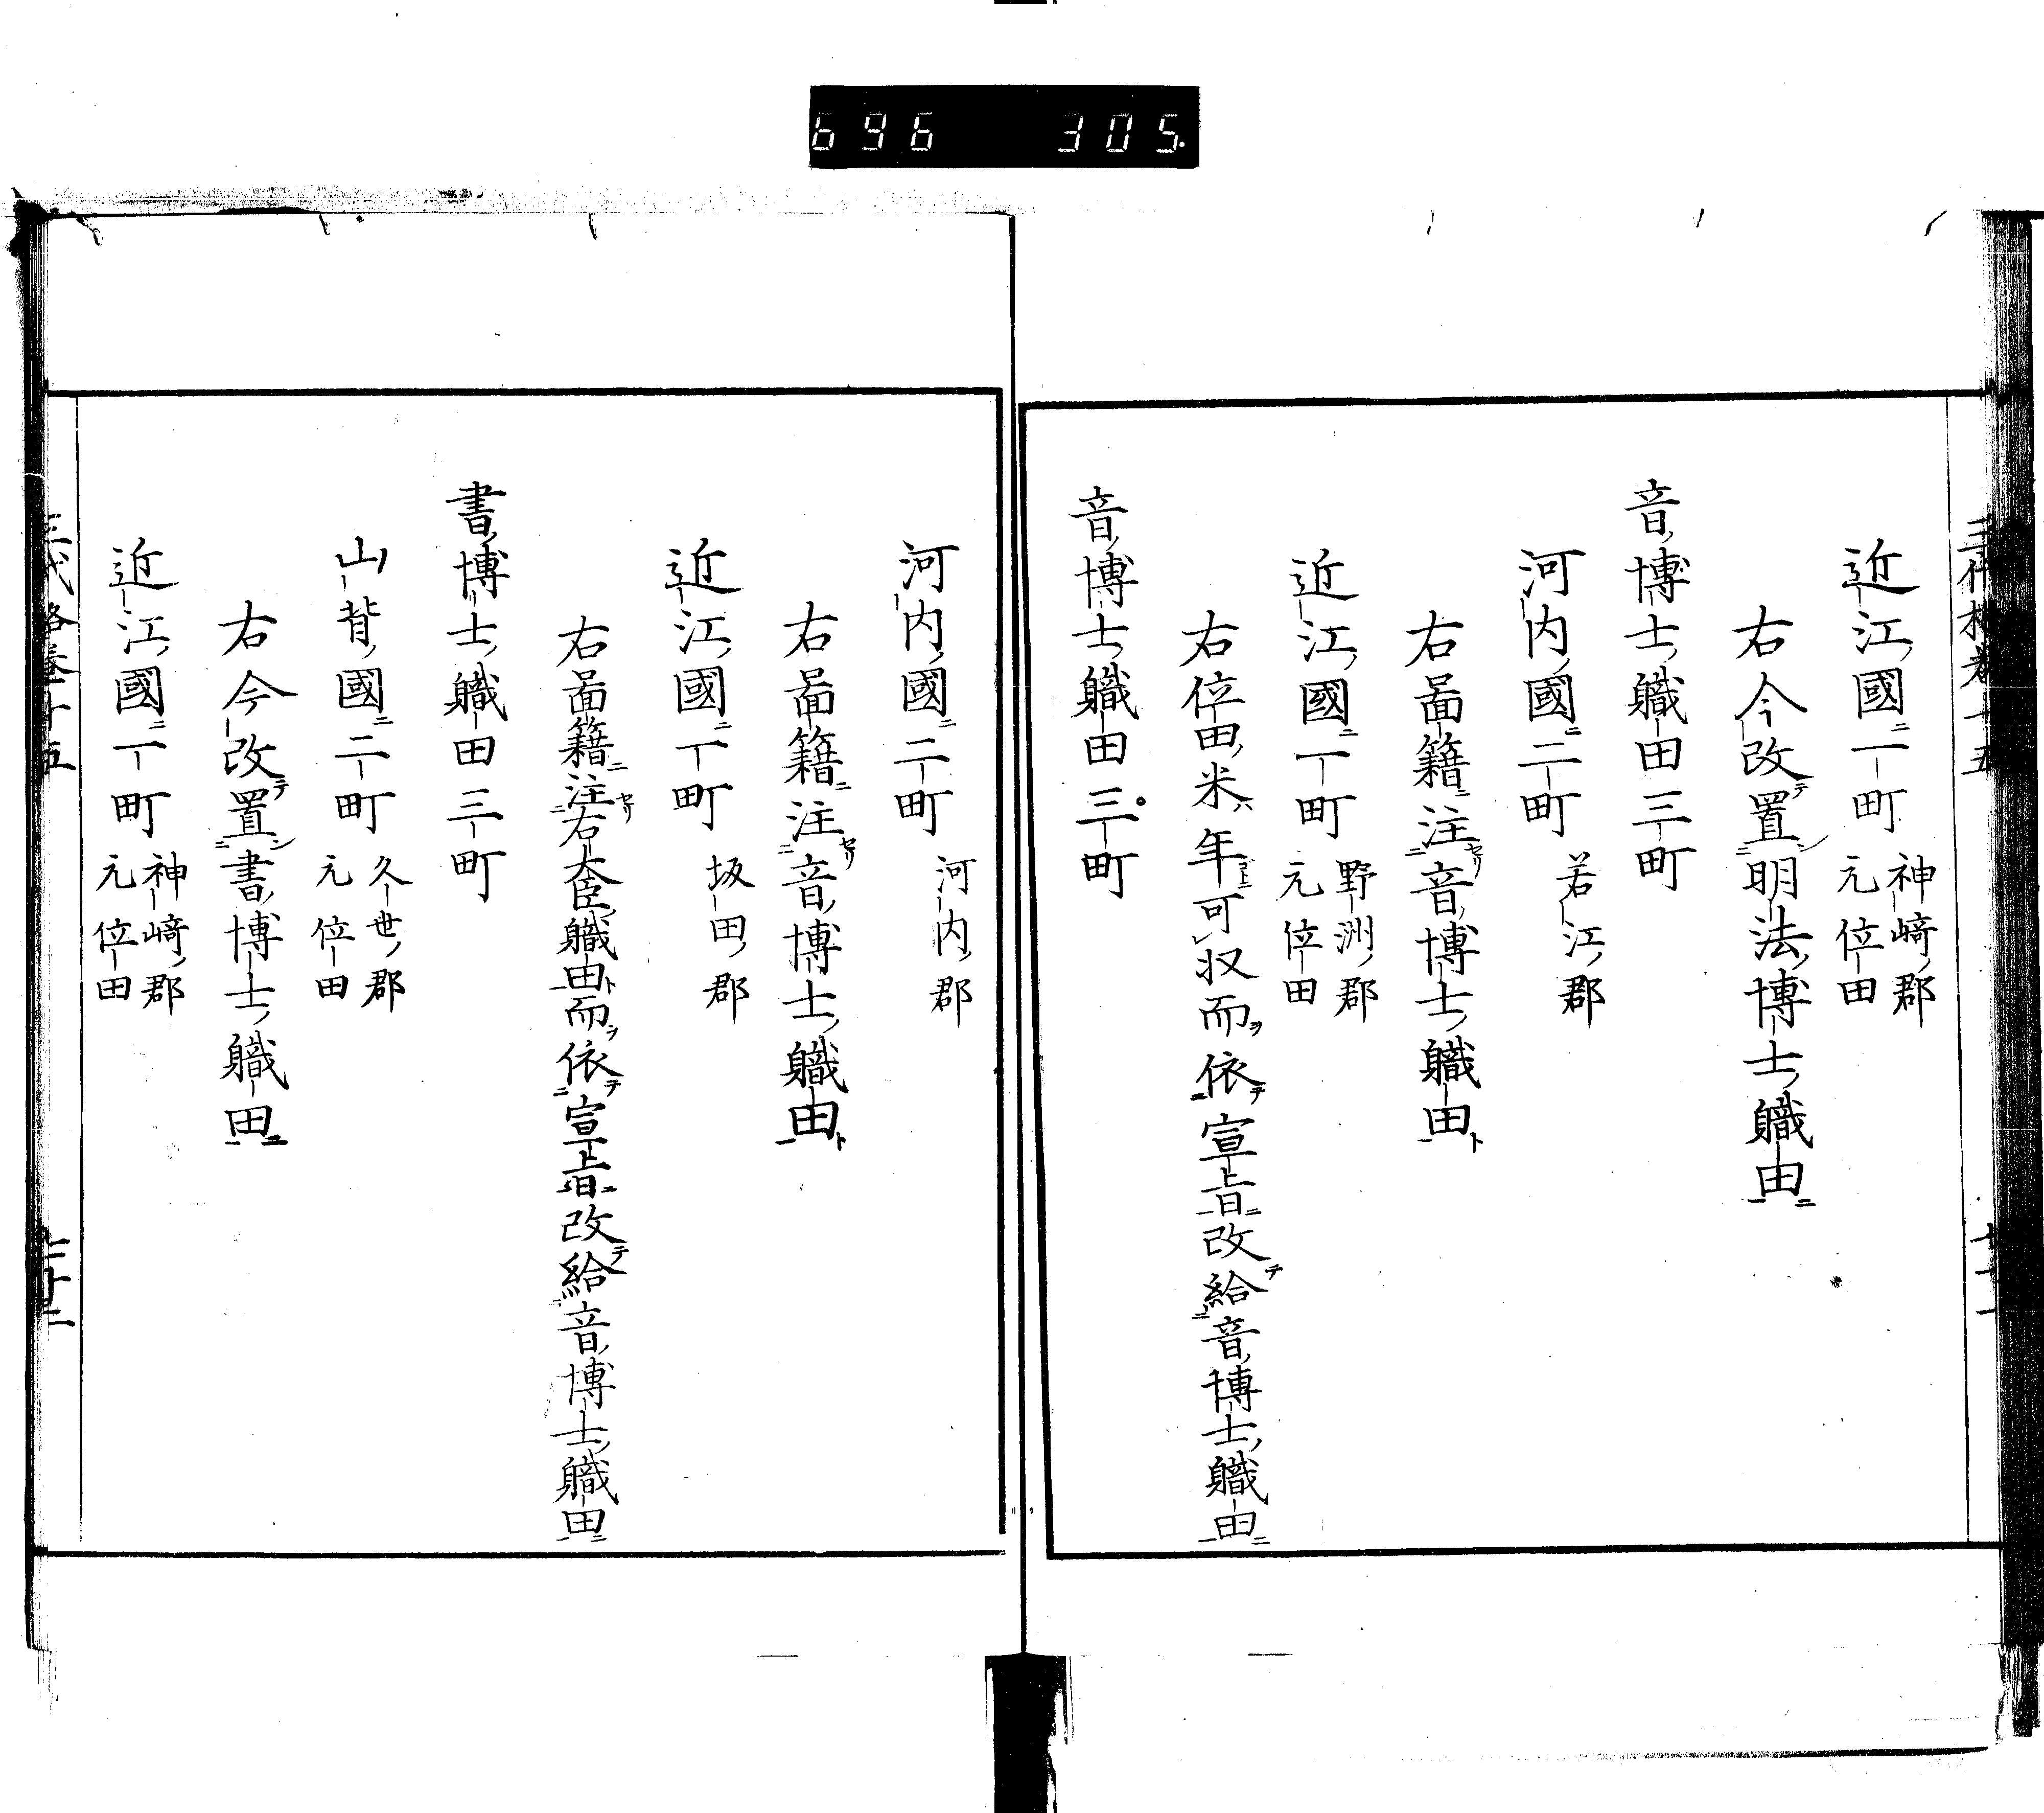 696 305.
近江國一町 神﨑郡 元位田
右今改置明法博士職田
音博士職田三町
河内國二町 若江郡
右啚籍注音博士職田
近江國一町 野洲郡 元位田
右位田米年可収而依宣旨改給音博士職田
音博士職田三町
河内國二町 河内郡
右啚籍注音博士職田
近江國一町 坂田郡
右啚籍注右大臣職田而依宣旨改給音博士職田
書博士職田三町
山背國二町 久世郡 元位田
右今改置書博士職田
近江國一町 神﨑郡 元位田